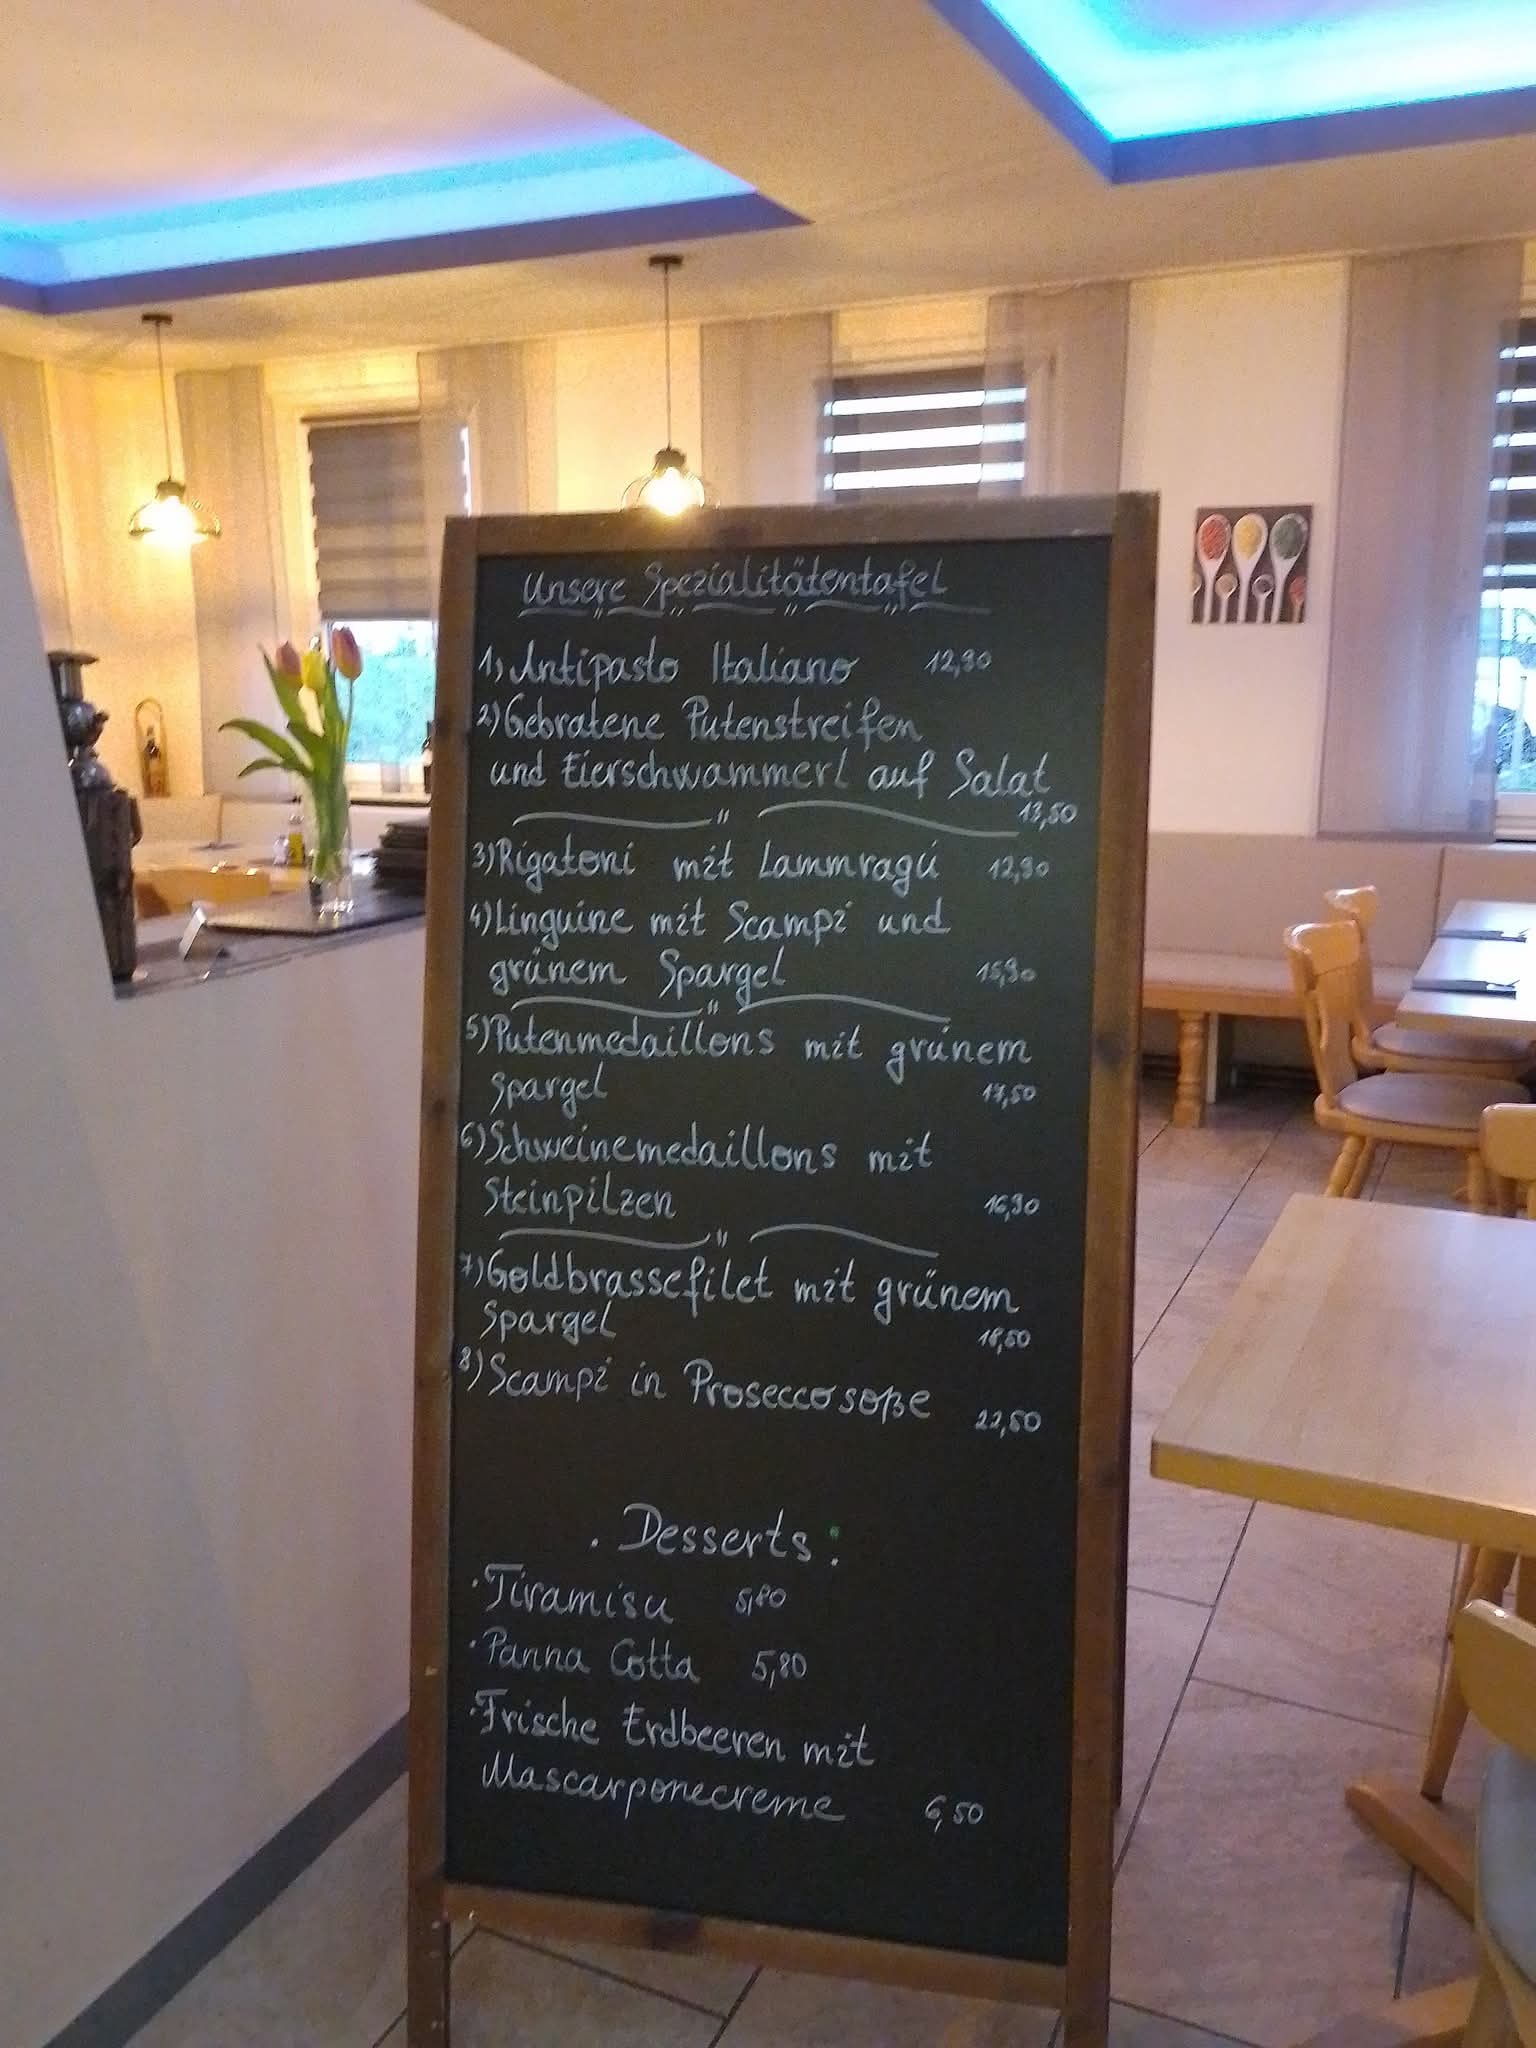 Unsere Spezialitätentafel
1) Antipasto Italiano 12,90
2) Gebratene Putenstreifen
und Eierschwammerl auf Salat
13,50
3) Rigatoni mit Lammragú 12,90
4) Linguine mit Scampi und
grünem Spargel 15,90
5) Putenmedaillons mit grünem
Spargel 17,50
6) Schweinemedaillons mit
Steinpilzen 16,90
7) Goldbrassefilet mit grünem
Spargel 18,50
8) Scampi in Proseccosoße 22,50
. Desserts:
· Tiramisu 5,80
· Panna Cotta 5,80
· Frische Erdbeeren mit
Mascarponecreme 6,50